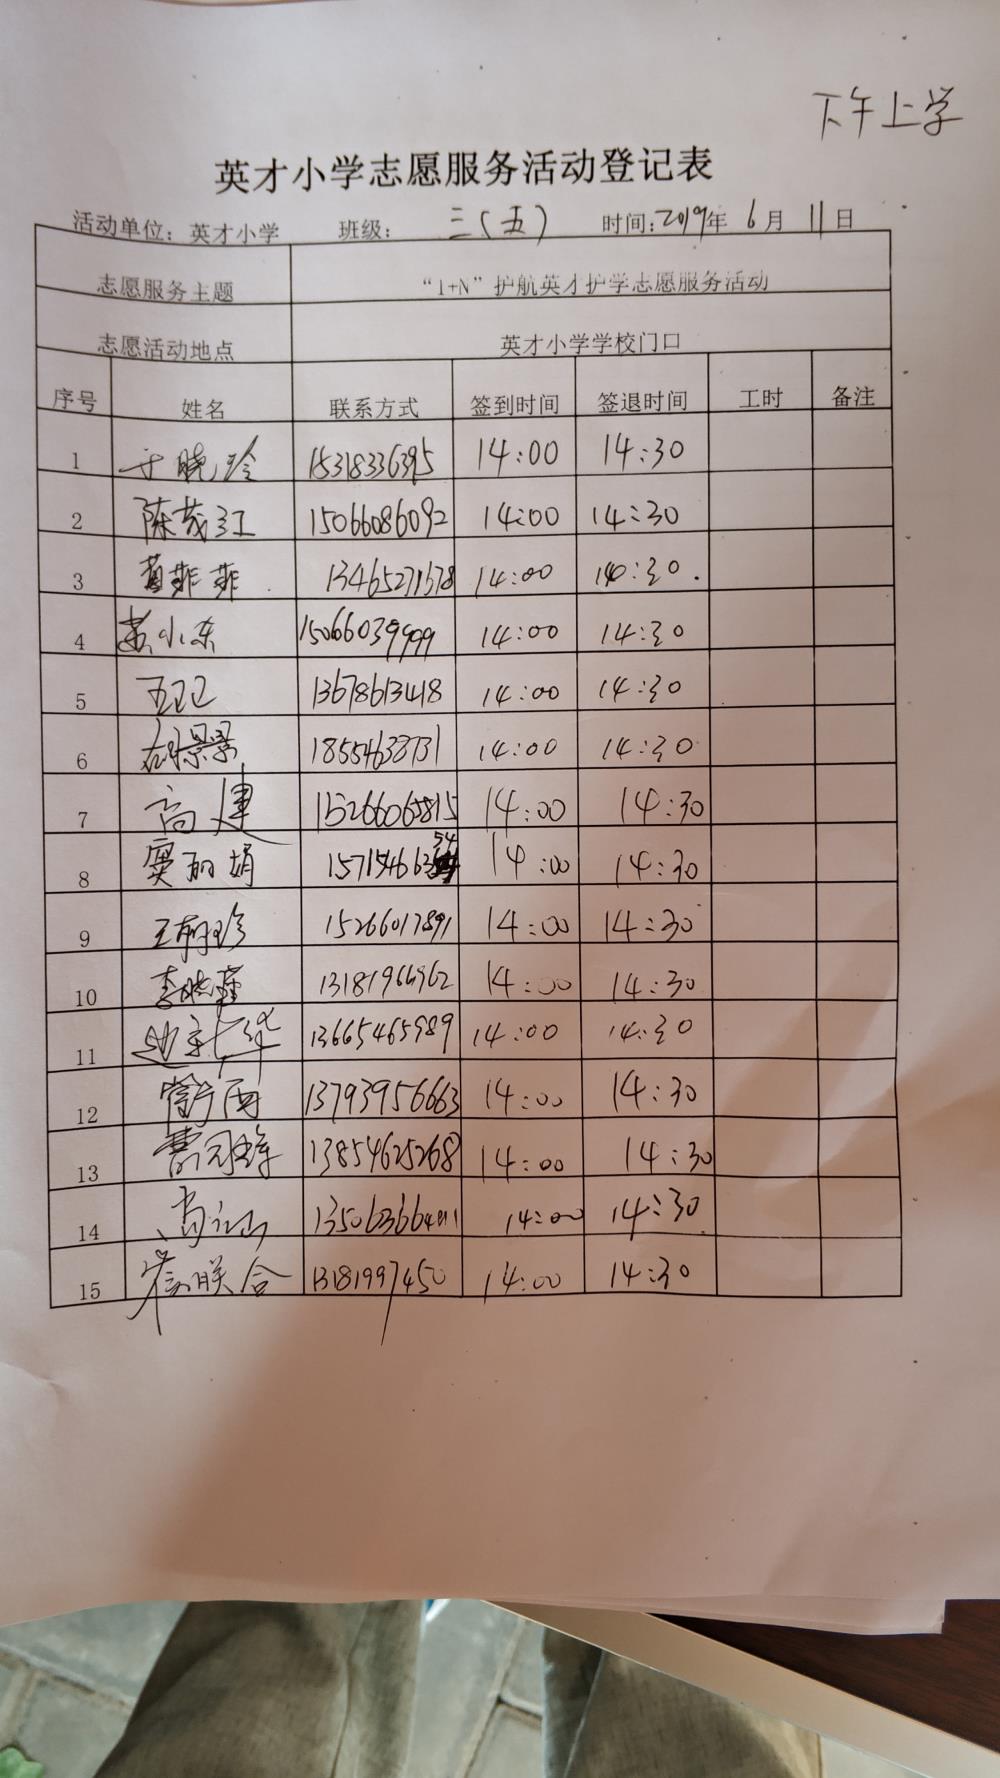 下午上学
英才小学志愿服务活动登记表
活动单位：英才小学 班级：三（五） 时间：2019年6月11日
志愿服务主题 “1+N”护航英才护学志愿服务活动
志愿活动地点 英才小学学校门口
序号 姓名 联系方式 签到时间 签退时间 工时 备注
1 于晓玲 15318336395 14:00 14:30
2 陈茂江 15066086092 14:00 14:30
3 黄菲菲 13465271678 14:00 14:30.
4 苏小东 15066039999 14:00 14:30
5 13678613418 14:00 14:30
6 胡景景 18554633731 14:00 14:30
7 高建 15266065815 14:00 14:30
8 窦丽娟 14:00 14:30
9 15266017891 14:00 14:30
10 李晓蕾 13181966962 14:00 14:30
11 边新华 13665465989 14:00 14:30
12 13793956663 14:00 14:30
13 13854625268 14:00 14:30
14 14:00 14:30
15 联合 13181997450 14:00 14:30